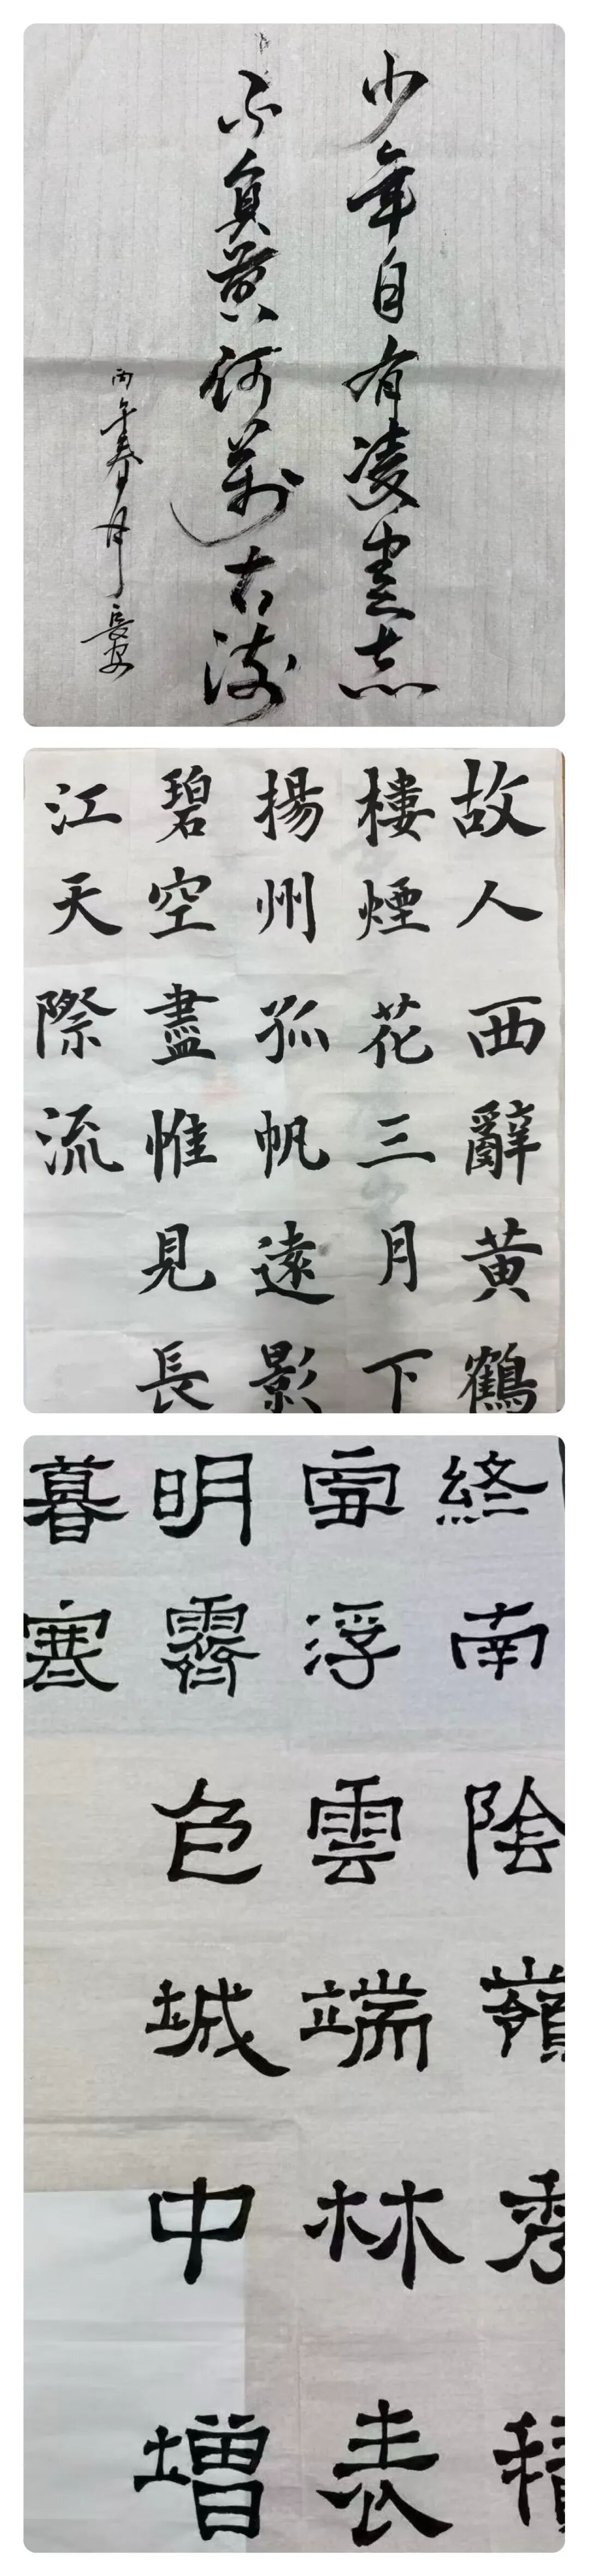 少年自有凌雲志
不負黄河萬古
丙午春月長安
故人西辭黄鶴
樓煙花三月下
揚州孤帆遠影
碧空盡惟見長
江天際流
終南陰嶺秀積
雪浮雲端林表
明霽色城中增
暮寒